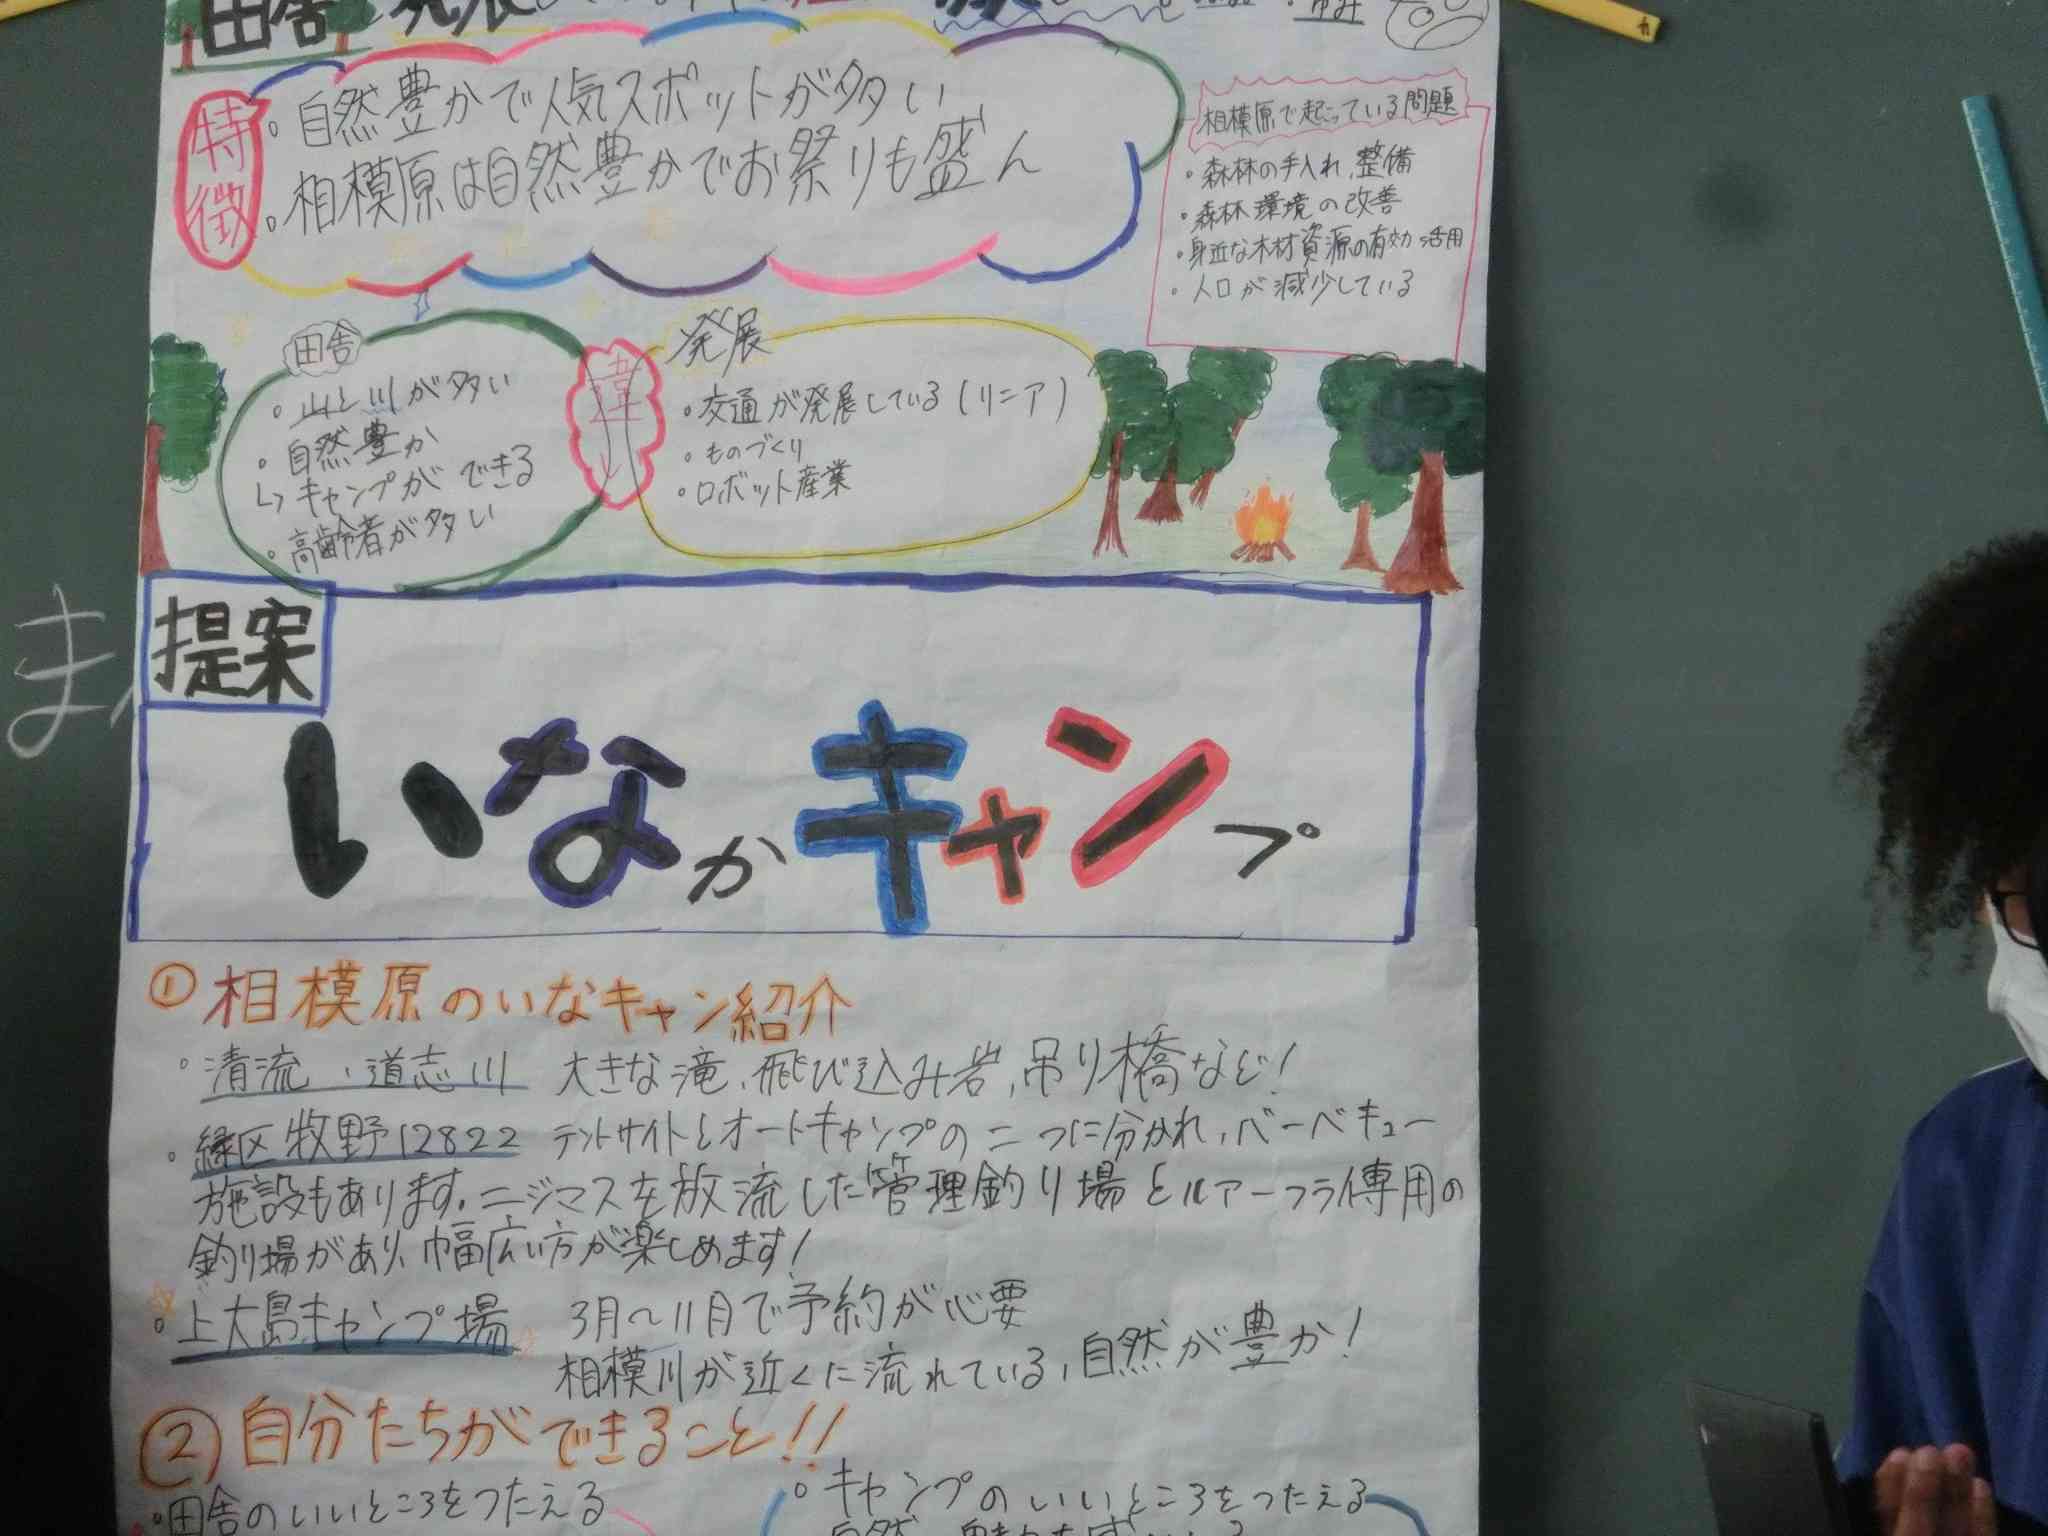 田舎 発展
特徴
。自然豊かで人気スポットが多い
。相模原は自然豊かでお祭りも盛ん
相模原で起こっている問題
・森林の手入れ、整備
・森林環境の改善
・身近な木材資源の有効活用
・人口が減少している
田舎
・山と川が多い
・自然豊か
↳キャンプができる
・高齢者が多い
違い
発展
。交通が発展している(リニア)
・ものづくり
・ロボット産業
ま
提案
いなかキャンプ
①相模原のいなキャン紹介
。清流、道志川 大きな滝、飛び込み岩、吊り橋など!
。緑区牧野12822 テントサイトとオートキャンプの二つに分かれ、バーベキュー
施設もあります。ニジマスを放流した管理釣り場とルアーフライ専用の
釣り場があり、幅広い方が楽しめます!
。上大島キャンプ場 3月〜11月で予約が必要
相模川が近くに流れている、自然が豊か!
②自分たちができること!!
・田舎のいいところをつたえる
。キャンプのいいところをつたえる